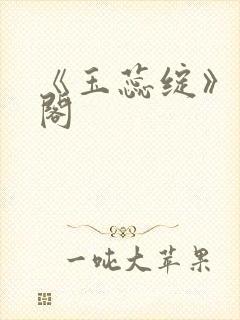 《玉蕊绽》
阁
一吨大苹果